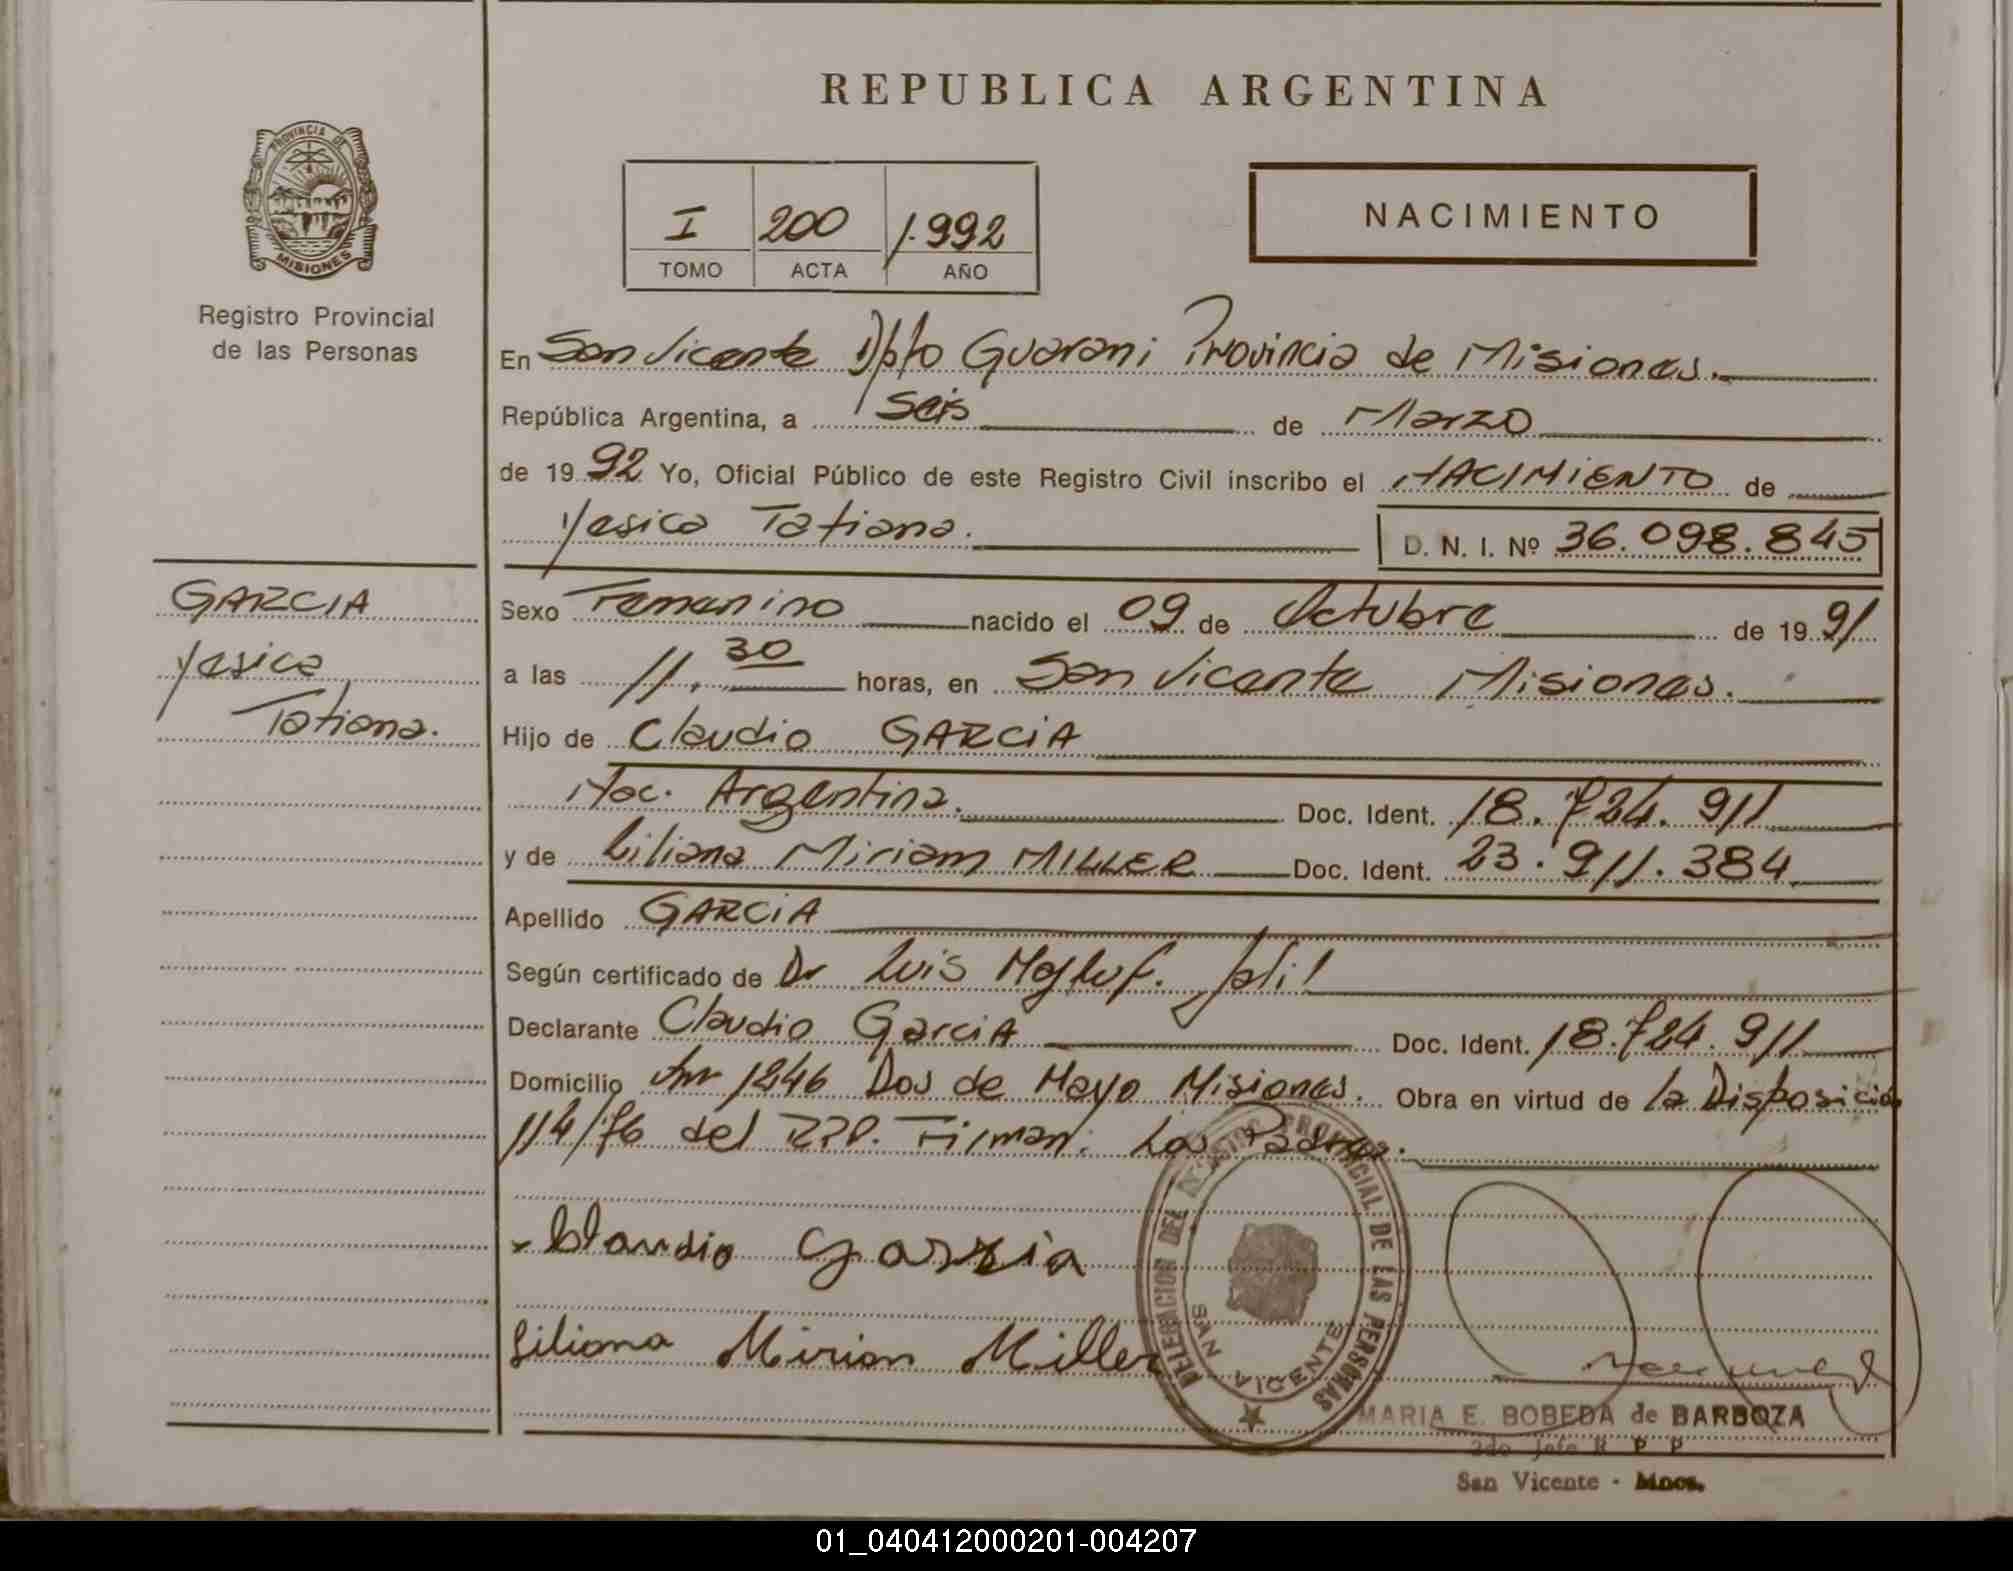 REPUBLICA ARGENTINA
PROVINCIA DE
MISIONES
Registro Provincial
de las Personas
I 200 1.992
TOMO ACTA AÑO
NACIMIENTO
En San Vicente Dpto Guarani Provincia de Misiones.
República Argentina, a Seis de Marzo
de 1992 Yo, Oficial Público de este Registro Civil inscribo el NACIMIENTO de
Yesica Tatiana. D. N. I. Nº 36.098.845
GARCIA
Yesica
Tatiana.
Sexo Femenino nacido el 09 de Octubre de 1991
a las 11.30 horas, en San Vicente Misiones.
Hijo de Claudio GARCIA
Nac. Argentina. Doc. Ident. 18.724.911
y de Liliana Miriam MILLER Doc. Ident. 23.911.384
Apellido GARCIA
Según certificado de Dr Luis Jalil
Declarante Claudio GarciA Doc. Ident. 18.724.911
Domicilio 1246 Dos de Mayo Misiones. Obra en virtud de la Disposición
114/76 del RPP. Firman: Los Padres.
Claudio Garcia
Liliana Mirian Miller
DELEGACION DEL REGISTRO PROVINCIAL DE LAS PERSONAS
SAN VICENTE
MARIA E. BOBEDA de BARBOZA
2do Jefe R P P
San Vicente - Mnes.
01_040412000201-004207